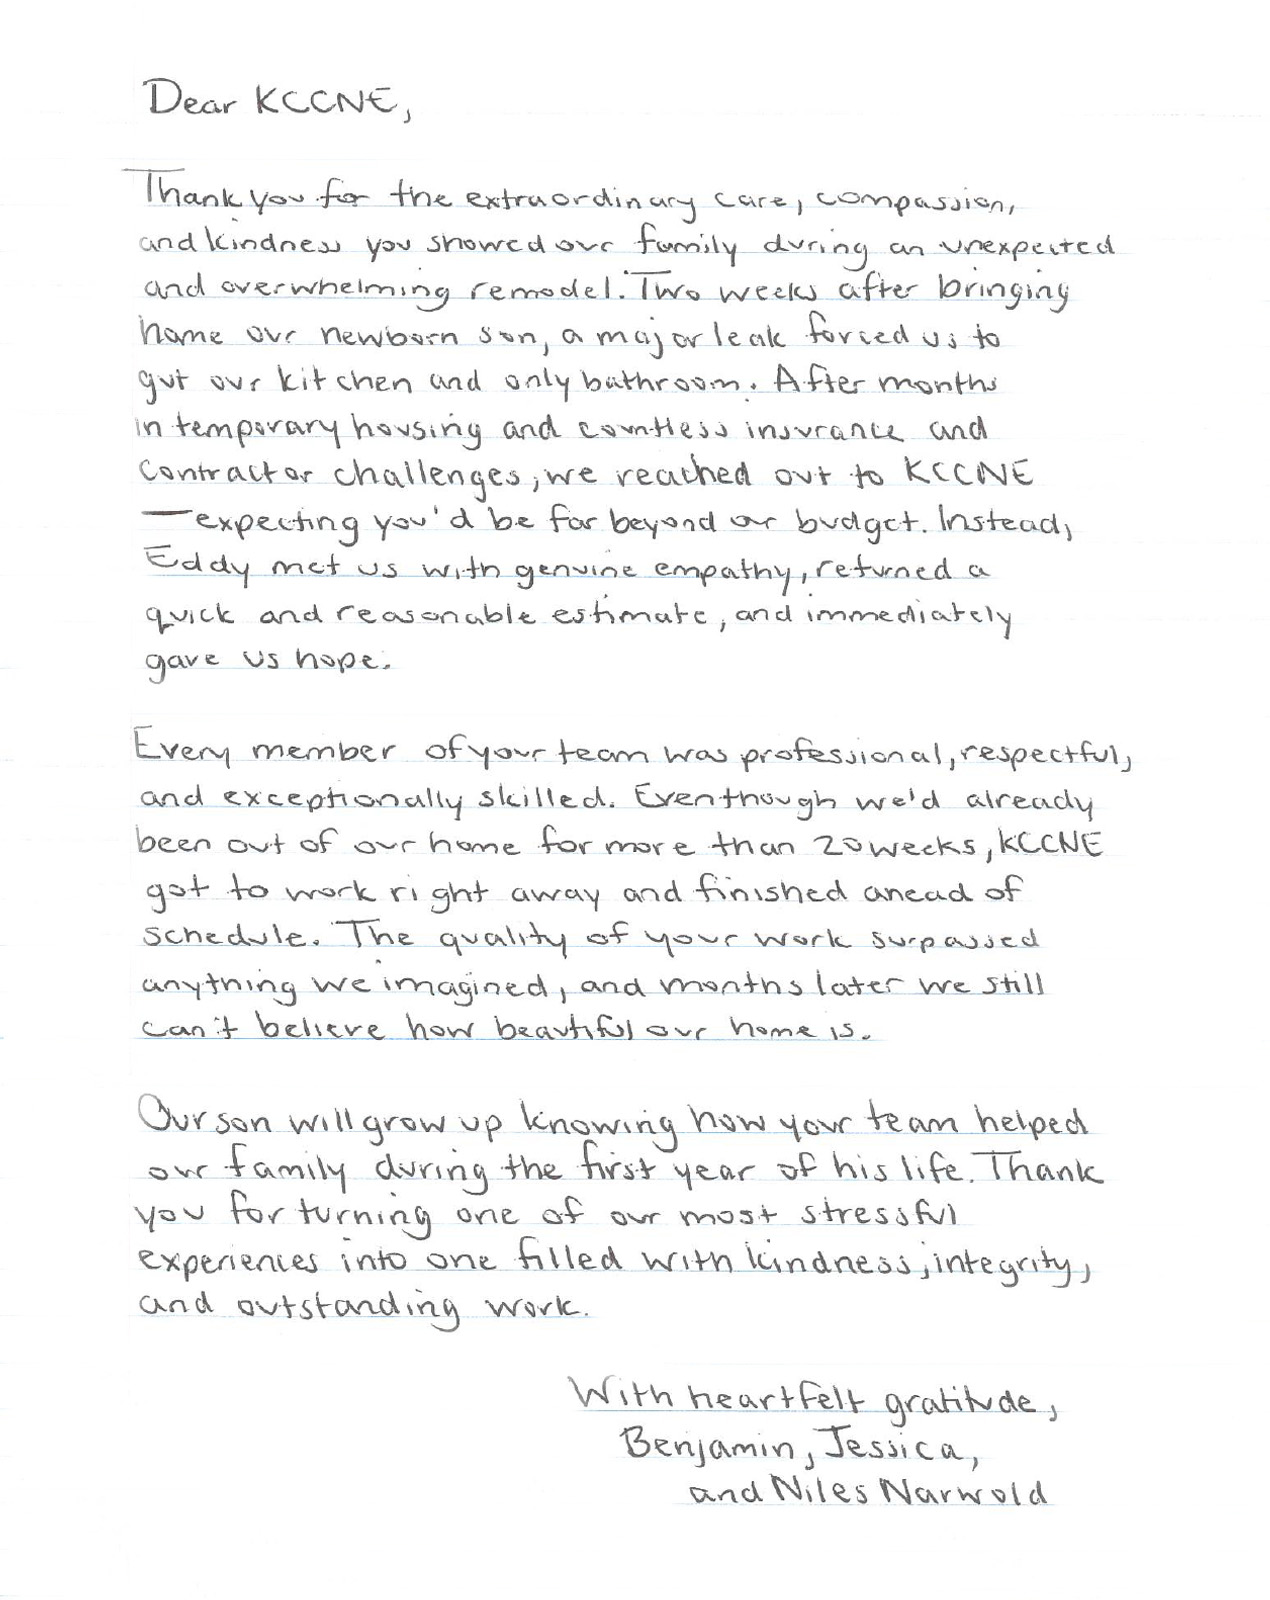 Dear KCCNE,
Thank you for the extraordinary care, compassion,
and kindness you showed our family during an unexpected
and overwhelming remodel. Two weeks after bringing
home our newborn son, a major leak forced us to
gut our kitchen and only bathroom. After months
in temporary housing and countless insurance and
contractor challenges, we reached out to KCCNE
—expecting you'd be far beyond our budget. Instead,
Eddy met us with genuine empathy, returned a
quick and reasonable estimate, and immediately
gave us hope.
Every member of your team was professional, respectful,
and exceptionally skilled. Even though we'd already
been out of our home for more than 20 weeks, KCCNE
got to work right away and finished ahead of
schedule. The quality of your work surpassed
anything we imagined, and months later we still
can't believe how beautiful our home is.
Our son will grow up knowing how your team helped
our family during the first year of his life. Thank
you for turning one of our most stressful
experiences into one filled with kindness, integrity,
and outstanding work.
With heartfelt gratitude,
Benjamin, Jessica,
and Niles Narwold